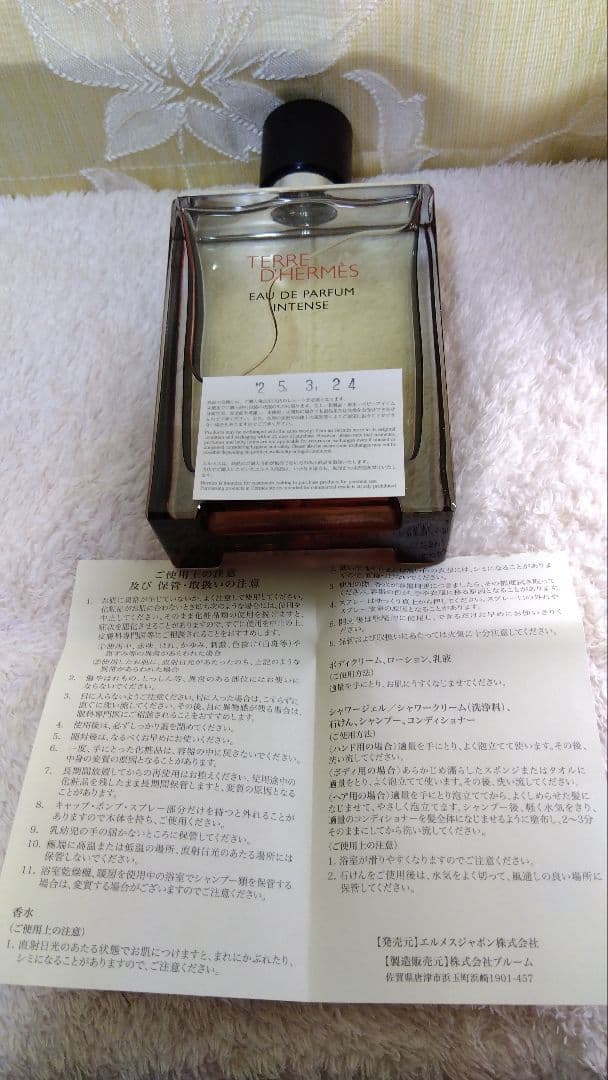 TERRE
D'HERMÈS
EAU DE PARFUM
INTENSE
'25 3, 24
Products may be exchanged with the sales receipt from an Hermès store in its original
condition and packaging within 10 days of purchase.
Purchasing products at Hermès stores intended for commercial resale is strictly prohibited.
ご使用上の注意
及び 保管・取扱いの注意
1. お肌に異常が生じていないか、よく注意して使用してください。
化粧品がお肌に合わないとき
皮膚科専門医等にご相談されることをおすすめします。
①使用中、赤味、はれ、かゆみ、刺激、色抜け(白斑等)や
黒ずみ等の異常があらわれた場合
②使用したお肌に、直射日光があたったのち、上記のような
異常があらわれた場合
2. 傷やはれもの、しっしん等、異常のある部位にはお使いに
ならないでください。
3. 目に入らないようご注意ください。目に入った場合は、こすらずに
直ぐに洗い流してください。その後、目に異物感が残る場合は、
眼科専門医にご相談されることをおすすめします。
4. 使用後は、必ずしっかり蓋を閉めてください。
5. 開封後は、なるべくお早めにお使いください。
6. 一度、手にとった化粧品は、容器の中に戻さないでください。
中身の変質の原因となることがあります。
7. 長期間放置してからの再使用はお控えください。使用途中の
化粧品を残したまま長期間保管しますと、変質の原因となる
ことがあります。
8. キャップ・ポンプ・スプレー部分だけを持つと外れることが
ありますので本体を持ち、ご使用ください。
9. 乳幼児の手の届かないところに保管してください。
10. 極端に高温または低温の場所、直射日光のあたる場所には
保管しないでください。
11. 浴室乾燥機、暖房を使用中の浴室でシャンプー類を保管する
場合は、変質する場合がございますのでご注意ください。
香水
(ご使用上の注意)
1. 直射日光のあたる状態でお肌につけますと、まれにかぶれたり、
シミになることがありますので、ご注意ください。
6. 保管および取扱いにあたっては火気に十分注意してください。
ボディクリーム、ローション、乳液
(ご使用方法)
適量を手にとり、お肌にうすくなじませてください。
シャワージェル/シャワークリーム(洗浄料)、
石けん、シャンプー、コンディショナー
(ご使用方法)
〈ハンド用の場合〉適量を手にとり、よく泡立てて使います。その後、
洗い流してください。
〈ボディ用の場合〉あらかじめ濡らしたスポンジまたはタオルに
適量をとり、よく泡立てて使います。その後、洗い流してください。
〈ヘア用の場合〉適量を手にとり泡立ててから、よくしめらせた髪に
なじませて、やさしく泡立てます。シャンプー後、軽く水気をきり、
適量のコンディショナーを髪全体になじませるように塗布し、2~3分
そのままにしてから洗い流してください。
(ご使用上の注意)
1. 浴室が滑りやすくなりますのでご注意ください。
2. 石けんをご使用後は、水気をよく切って、風通しの良い場所に
保管してください。
【発売元】エルメスジャポン株式会社
【製造販売元】株式会社ブルーム
佐賀県唐津市浜玉町浜崎1901-457